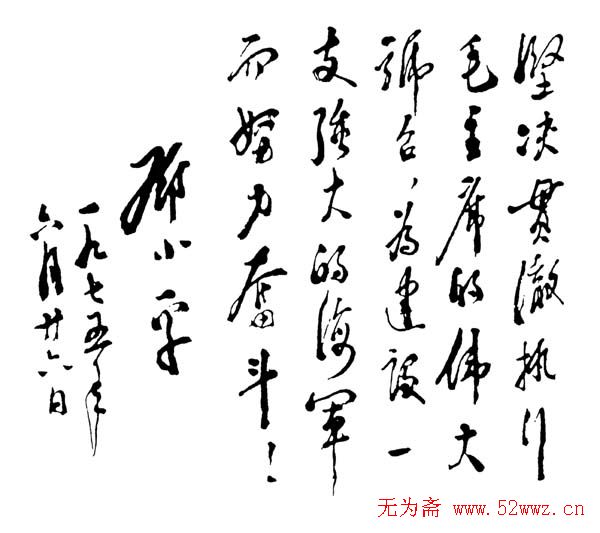 坚决贯澈执行
毛主席的伟大
號召，为建设一
支强大的海军
而努力奋斗！
邓小平
一九七五年
六月廿六日
无为斋 www.52wwz.cn